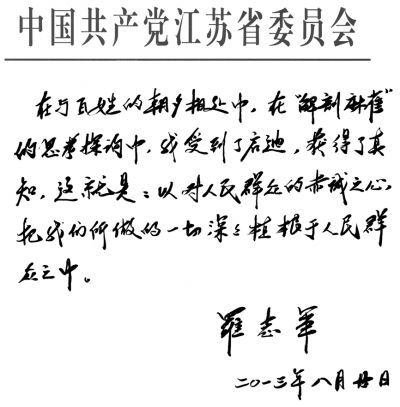 中国共产党江苏省委员会
在与百姓的朝夕相处中，在“解剖麻雀”
的思考探询中，我受到了启迪，获得了真
知，这就是：以对人民群众的赤诚之心，
把我们所做的一切深深植根于人民群
众之中。
罗志军
二〇一三年八月廿日